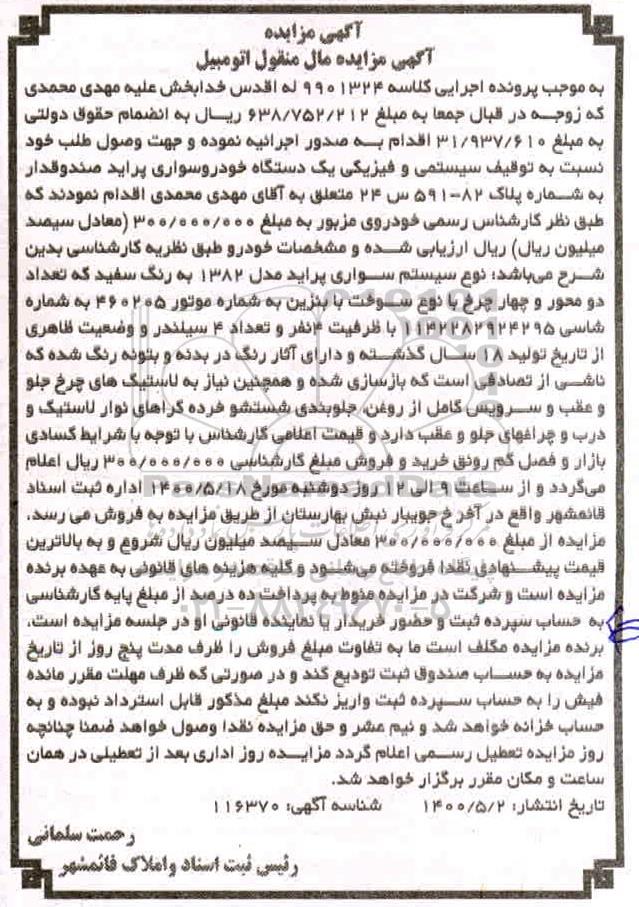 آگهی مزایده
آگهی مزایده مال منقول اتومبیل
به موجب پرونده اجرایی کلاسه ۹۹۰۱۳۲۴ له اقدس خدابخش علیه مهدی محمدی
که زوجه در قبال جمعا به مبلغ ۶۳۸/۷۵۲/۲۱۲ ریال به انضمام حقوق دولتی
به مبلغ ۳۱/۹۳۷/۶۱۰ اقدام به صدور اجرائیه نموده و جهت وصول طلب خود
نسبت به توقیف سیستمی و فیزیکی یک دستگاه خودروسواری پراید صندوقدار
به شماره پلاک ۸۲-۵۹۱ س ۲۴ متعلق به آقای مهدی محمدی اقدام نمودند که
طبق نظر کارشناس رسمی خودروی مزبور به مبلغ ۳۰۰/۰۰۰/۰۰۰ (معادل سیصد
میلیون ریال) ریال ارزیابی شده و مشخصات خودرو طبق نظریه کارشناسی بدین
شرح می‌باشد: نوع سیستم سواری پراید مدل ۱۳۸۲ به رنگ سفید که تعداد
دو محور و چهار چرخ با نوع سوخت با بنزین به شماره موتور ۴۶۰۲۰۵ به شماره
شاسی ۱۱۴۲۲۸۲۹۲۴۲۹۵ با ظرفیت ۴نفر و تعداد ۴ سیلندر و وضعیت ظاهری
از تاریخ تولید ۱۸ سال گذشته و دارای آثار رنگ در بدنه و بتونه رنگ شده که
ناشی از تصادفی است که بازسازی شده و همچنین نیاز به لاستیک های چرخ جلو
و عقب و سرویس کامل از روغن، جلوبندی شستشو خرده گراهای نوار لاستیک و
درب و چراغهای جلو و عقب دارد و قیمت اعلامی کارشناس با توجه با شرایط کسادی
بازار و فصل کم رونق خرید و فروش مبلغ کارشناسی ۳۰۰/۰۰۰/۰۰۰ ریال اعلام
می‌گردد و از ساعت ۹ الی ۱۲ روز دوشنبه مورخ ۱۴۰۰/۵/۱۸ اداره ثبت اسناد
قائمشهر واقع در آخر خ جویبار نبش بهارستان از طریق مزایده به فروش می رسد.
مزایده از مبلغ ۳۰۰/۰۰۰/۰۰۰ معادل سیصد میلیون ریال شروع و به بالاترین
قیمت پیشنهادی نقدا فروخته می‌شود و کلیه هزینه های قانونی به عهده برنده
مزایده است و شرکت در مزایده منوط به پرداخت ده درصد از مبلغ پایه کارشناسی
به حساب سپرده ثبت و حضور خریدار یا نماینده قانونی او در جلسه مزایده است.
برنده مزایده مکلف است ما به تفاوت مبلغ فروش را ظرف مدت پنج روز از تاریخ
مزایده به حساب صندوق ثبت تودیع کند و در صورتی که ظرف مهلت مقرر مانده
فیش را به حساب سپرده ثبت واریز نکند مبلغ مذکور قابل استرداد نبوده و به
حساب خزانه خواهد شد و نیم عشر و حق مزایده نقدا وصول خواهد ضمنا چنانچه
روز مزایده تعطیل رسمی اعلام گردد مزایده روز اداری بعد از تعطیلی در همان
ساعت و مکان مقرر برگزار خواهد شد.
تاریخ انتشار: ۱۴۰۰/۵/۲ شناسه آگهی: ۱۱۶۳۷۰
رحمت سلمانی
رئیس ثبت اسناد و املاک قائمشهر